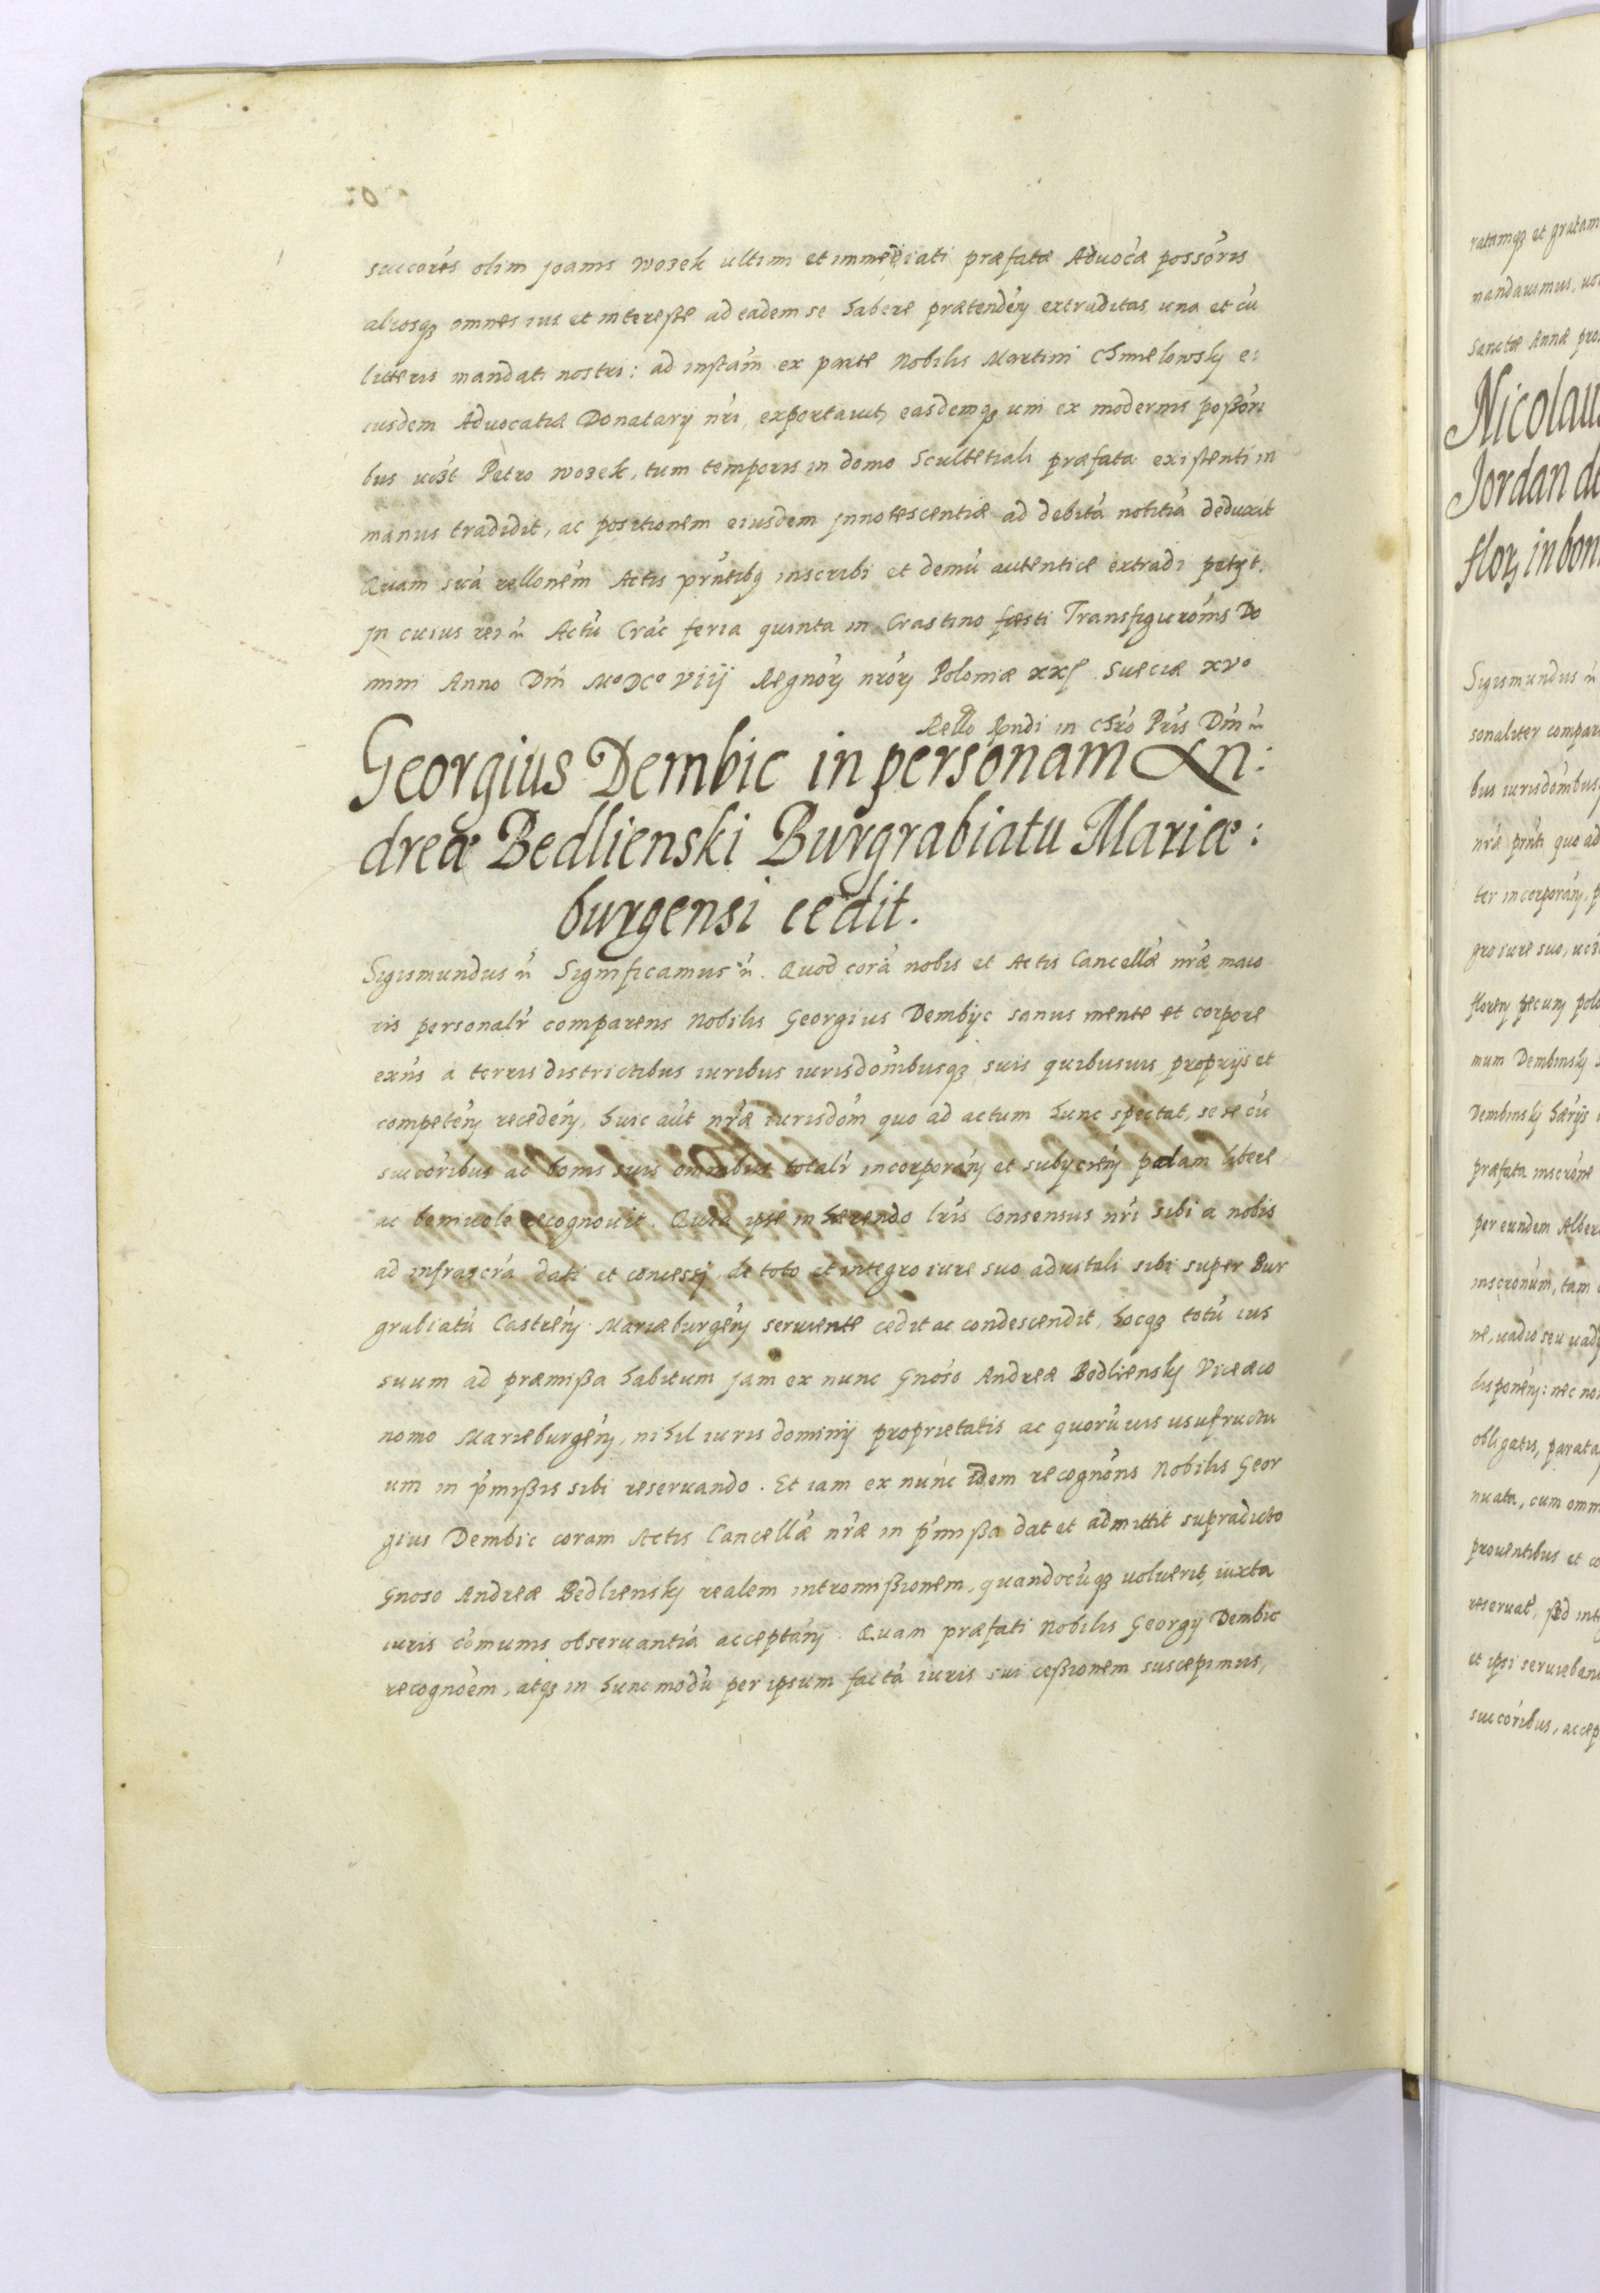 succores olim Joanis Wozek ultimi et immediati præfatæ Aduocæ possoris
aliosq3 omnes ius et interesse ad eadem se habere prætenden extraditas, una et cu
litteris mandati nostri: ad instam ex parte Nobilis Martini Chmelowsky e:
iusdem Aduocatiæ Donatarij nri, exportauit, easdemq3 uni ex modernis possori
bus uczt Petro Wozek, tum temporis in domo Scultetiali præfata existenti in
manus tradidit, ac positionem eiusdem Jnnotescentiæ ad debita notitia deduxit
Quam sua rellonem Actis prntibq inscribi et demu autentice extradi petijt.
Jn cuius rei Actu Crac feria quinta in Crastino fæsti Transfiguronis Do
mini Anno Dni Mº DCº VIIJ Regnor nror Poloniæ XXJ Sueciæ XVº
Rello Rndi in Chro Pris Dni
Georgius Dembic in personam An:
dreæ Bedlienski Burgrabiatu Mariæ:
burgensi cedit.
Sigismundus Significamus. Quod cora nobis et Actis Cancellæ nræ maio
ris personalr comparens Nobilis Georgius Dembijc sanus mente et corpore
exns a terris districtibus iuribus iurisdombusq3 suis quibusuis proprijs et
competen receden, huic aut nræ iurisdom quo ad actum hunc spectat, se se cu
succoribus ac bonis suis omnibus totalr incorporan et subijcien palam libere
ac beniuole recognouit. Quia ipse inhærendo lris Consensus nri sibi a nobis
ad infrascra dati et concessi, de toto et integro iure suo aduitali sibi super Bur
grabiatu Castren Mariæburgen seruiente cedit ac condescendit, hocq3 totu ius
suum ad præmissa habitum jam ex nunc Gnoso Andreæ Bedliensky Viceæco
nomo Marieburgen, nihil iuris dominij proprietatis ac quoruuis usufructu
um in pmissis sibi reseruando. Et iam ex nunc idem recognons Nobilis Geor
gius Dembic coram Actis Cancellæ nræ in pmissa dat et admittit supradicto
Gnoso Andreæ Bedliensky realem intromissionem, quandocuq3 uoluerit, iuxta
iuris comunis obseruantia acceptan. Quam præfati Nobilis Georgij Dembic
recognoem, atq3 in hunc modu per ipsum facta iuris sui cessionem suscepimus,
ratamq3 et gratam
mandauimus, uo
Sanctæ Annæ pro
Nicolau
Jordan de
flor, in bon
Sigismundus
sonaliter compar
bus iurisdombus
nræ prnti quo ad
ter incorporan, p
gro iure suo, ucz
floren pecun polo
mum Dembinsky
Dembinsky hærijs
præfata inscrone
per eundem Alber
inscronum, tam
ne, uadio seu uadi
disponen: nec no
obligatis, parata
nuata, cum omn
prouentibus et co
reseruat, sed int
et ipsi seruieban
succoribus, accep